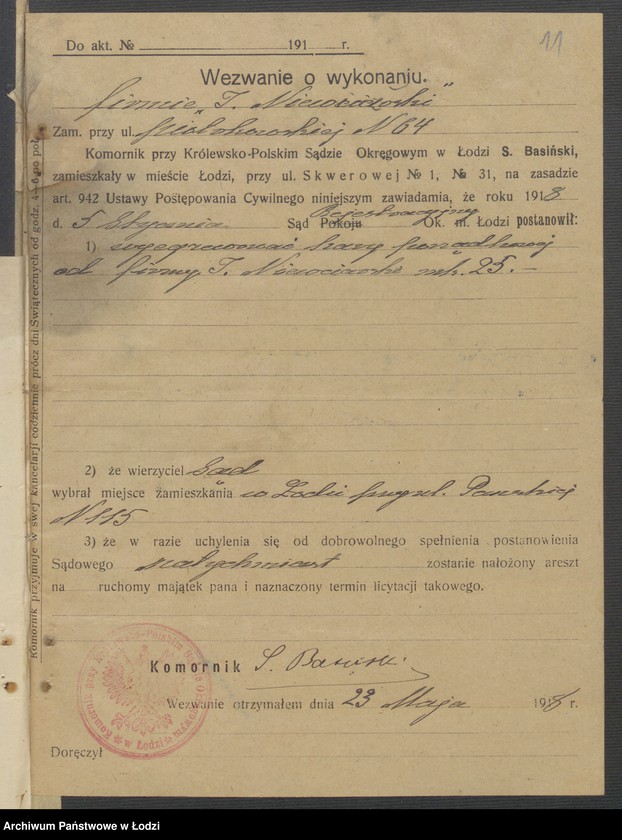 11
Do akt. № 191 r.
Wezwanie o wykonaniu.
firmie „I. Niewiażski"
Zam. przy ul. N 64
Komornik przy Królewsko-Polskim Sądzie Okręgowym w Łodzi S. Basiński,
zamieszkały w mieście Łodzi, przy ul. Skwerowej № 1, № 31, na zasadzie
art. 942 Ustawy Postępowania Cywilnego niniejszym zawiadamia, że roku 1918
d. 5 Stycznia Sąd Pokoju Rejestracyjny Ok. m. Łodzi postanowił:
1) wyegzekwować karę porządkową
od firmy I. rb. 25.—
2) że wierzyciel Sąd
wybrał miejsce zamieszkania w Łodzi przy ul. Pańskiej
N 115
3) że w razie uchylenia się od dobrowolnego spełnienia postanowienia
Sądowego natychmiast zostanie nałożony areszt
na ruchomy majątek pana i naznaczony termin licytacji takowego.
Komornik S. Basiński
Wezwanie otrzymałem dnia 23 Maja 1918 r.
Doręczył
Komornik przyjmuje w swej kancelarji codziennie prócz dni Świątecznych od godz. 4—6 po poł.
Komornik przy Królewsko-Polskim Sądzie Okręgowym w Łodzi
Archiwum Państwowe w Łodzi